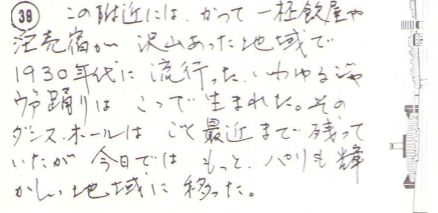 39 この附近には、かつて一杯飲屋や
淫売宿が沢山あった地域で
1930年代に流行った、いわゆるジャ
ヴァ踊りはこゝで生まれた。その
ダンス・ホールはごく最近まで残って
いたが今日ではもっと、パリも輝
かしい地域に移った。